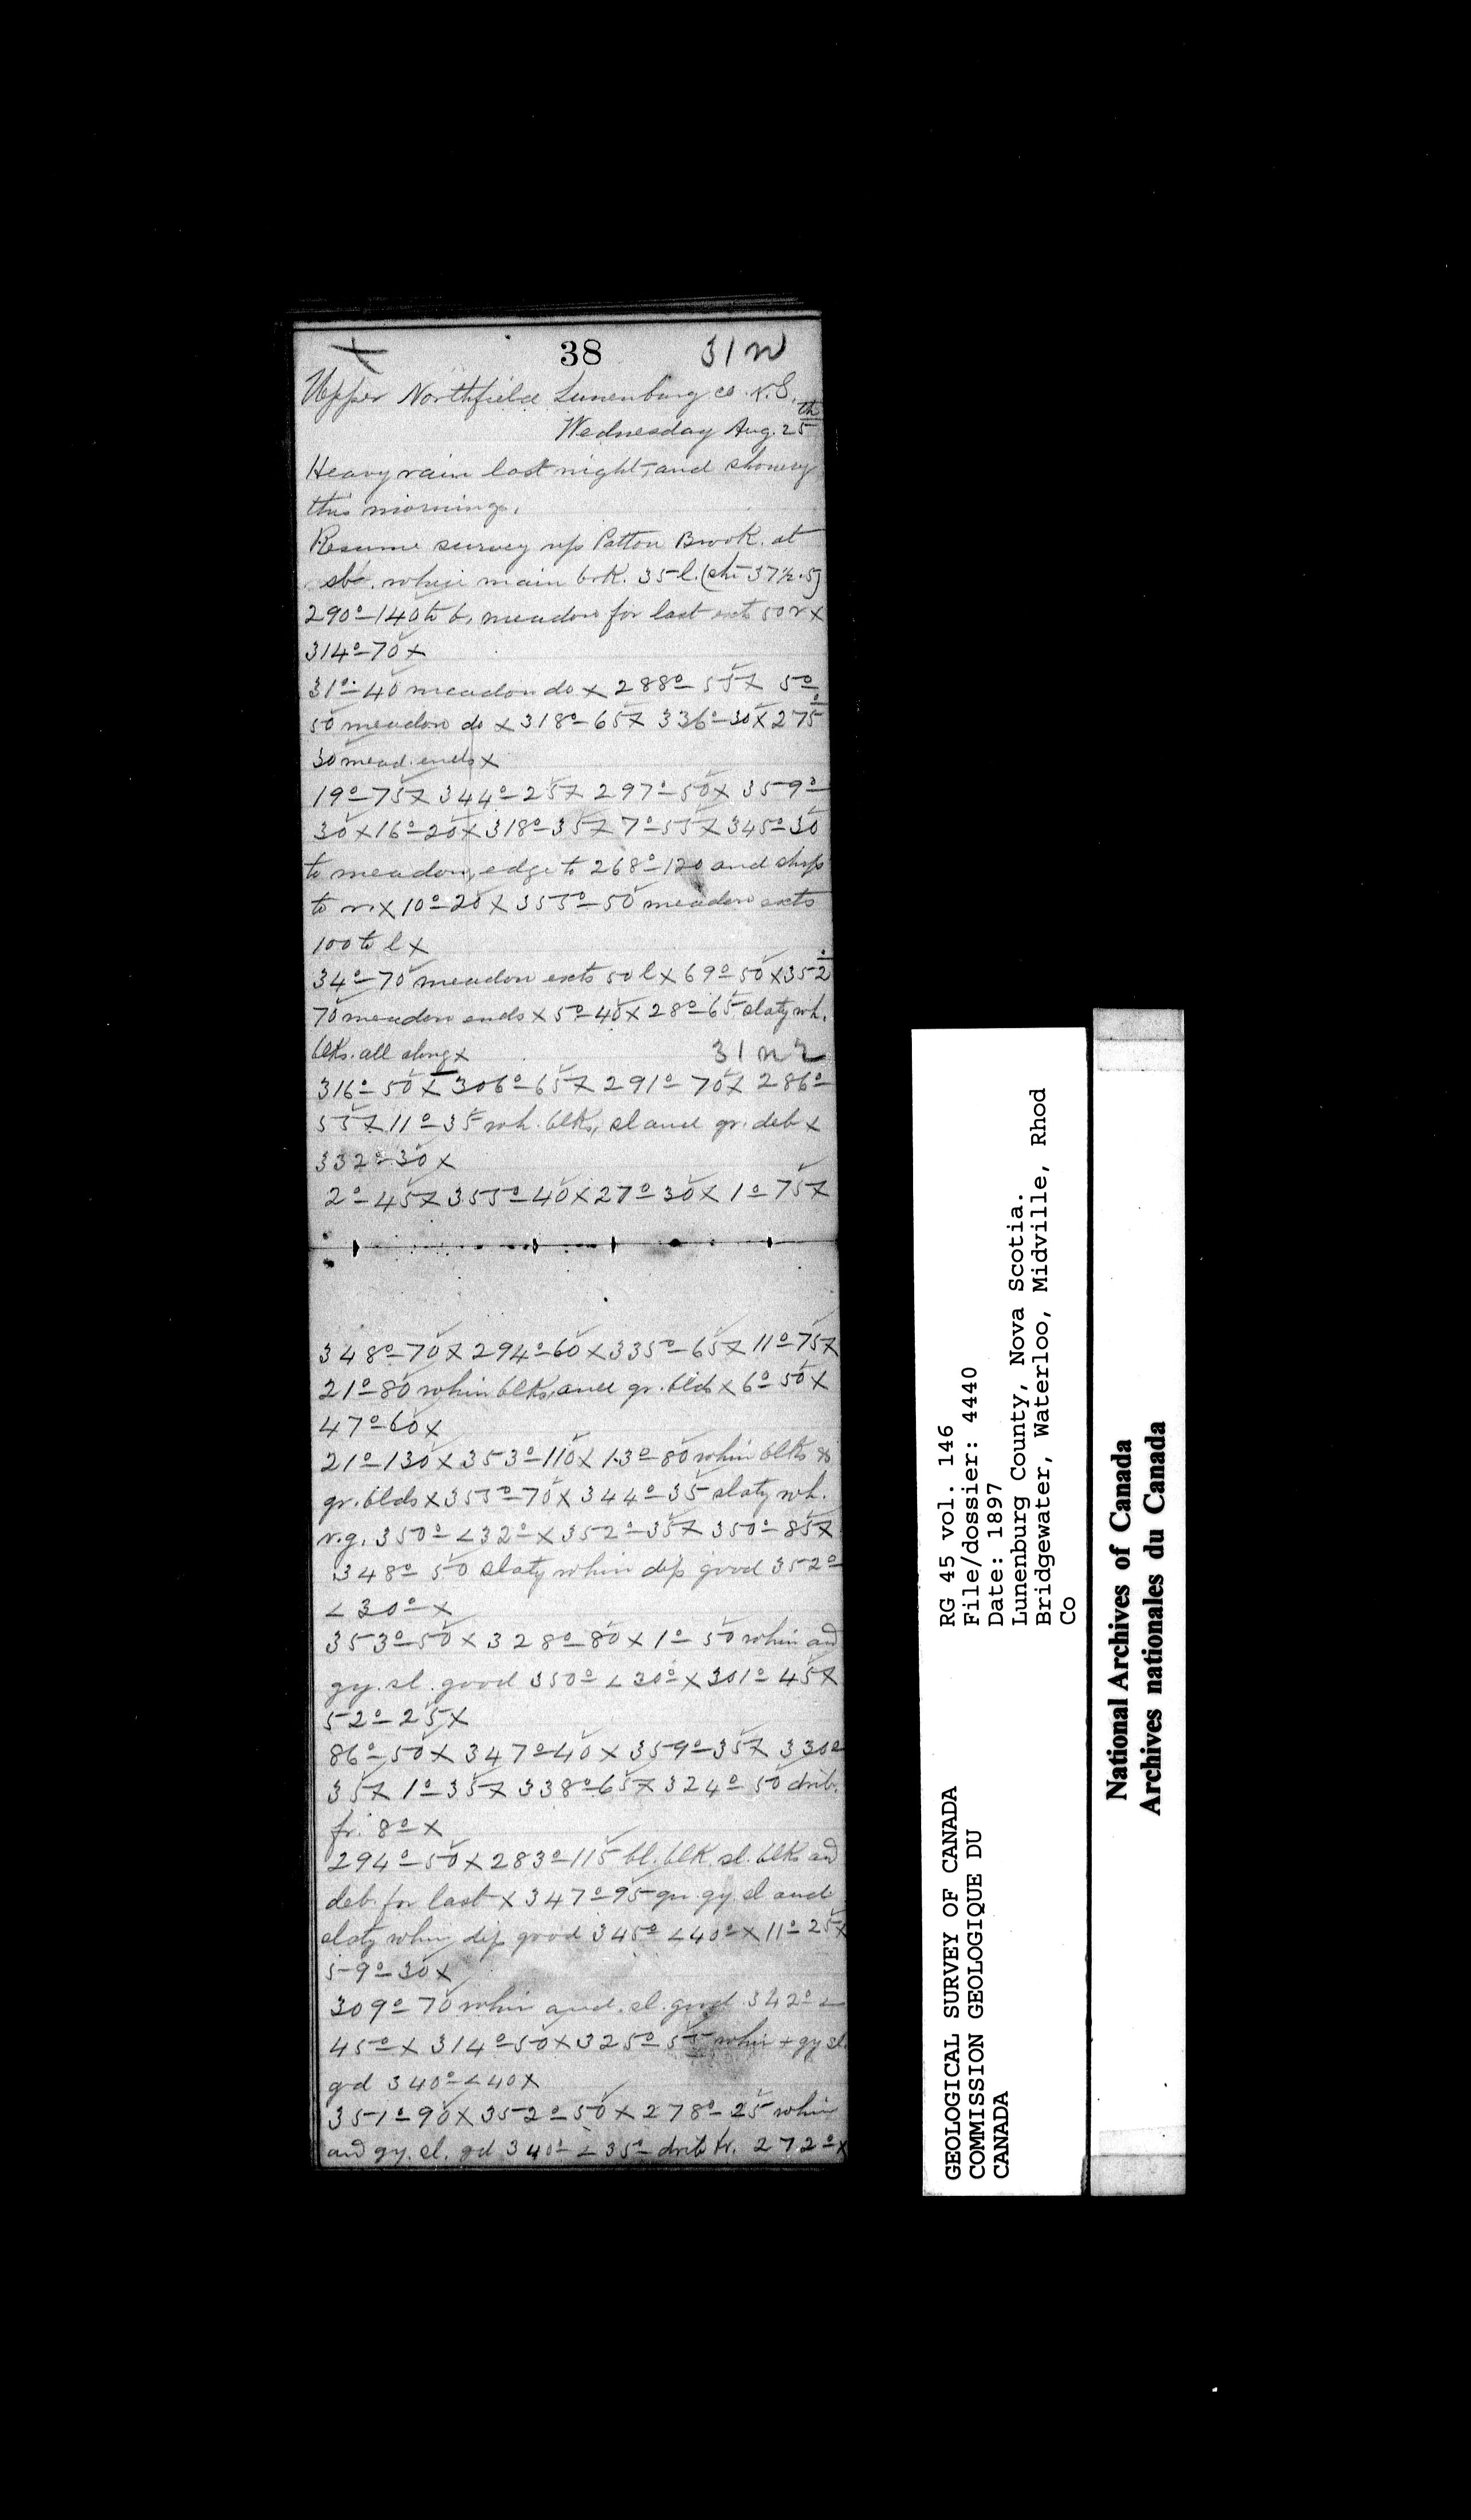 38 31 N
Upper Northfield Lunenburg Co. N.S.
Wednesday Aug. 25th
Heavy rain last night, and showery
this morning.
Resume survey up Patton Brook. at
st. where main brk. 35 l. (sht 37½.5)
290°–140 to b, meadow for last exts 50 r x
314°–70 x
31°–40 meadow do x 288°–55 x 5°
50 meadow do x 318°–65 x 336°–30 x 275°
30 mead. ends x
19°–75 x 344°–25 x 297°–50 x 359°–
30 x 16°–20 x 318°–35 x 7°–55 x 345° 30
to meadow, edge to 268°–120 and
to r. x 10°–20 x 355°–50 meadow exts
100 to l x
34°–70 meadow exts 50 l x 69° 50 x 352°
70 meadow ends x 5°–40 x 28°–65 slaty wh.
blks. all along x 31 N 2
316°–50 x 306°–65 x 291°–70 x 286°–
55 x 11°–35 wh. blks, sl and gr. deb x
332°–30 x
2°–45 x 355°–40 x 27°–30 x 1°–75 x
348°–70 x 294°–60 x 335°–65 x 11°–75 x
21°–80 whin blks, and gr. blds x 6°–50 x
47°–60 x
21°–130 x 353°–110 x 13°–80 whin blks &
gr. blds x 355°–70 x 344°–35 slaty wh.
v.g. 350° <32° x 352°–35 x 350°–85 x
348° 50 slaty whin dip good 352°
<30° x
353°–50 x 328°–80 x 1°–50 whin and
gy. sl. good 350° <30° x 301°–45 x
52°–25 x
86°–50 x 347°–40 x 359°–35 x 330°
35 x 1°–35 x 338°–65 x 324°–50 drib.
fr. 8° x
294°–50 x 283°–115 bl. blk. sl. blks and
deb. for last x 347°–95 gn. gy sl and
slaty whin dip good 345° <40° x 11°–25 x
59°–30 x
309°–70 whin and sl. good 342° <
45° x 314°–50 x 325°–55 whin + gy sl.
gd 340° <40 x
351°–90 x 352°–50 x 278°–25 whin
and gy. sl. gd 340° <35° drib fr. 272° x
GEOLOGICAL SURVEY OF CANADA
COMMISSION GEOLOGIQUE DU
CANADA
RG 45 vol. 146
File/dossier: 4440
Date: 1897
Lunenburg County, Nova Scotia.
Bridgewater, Waterloo, Midville, Rhod
Co
National Archives of Canada
Archives nationales du Canada